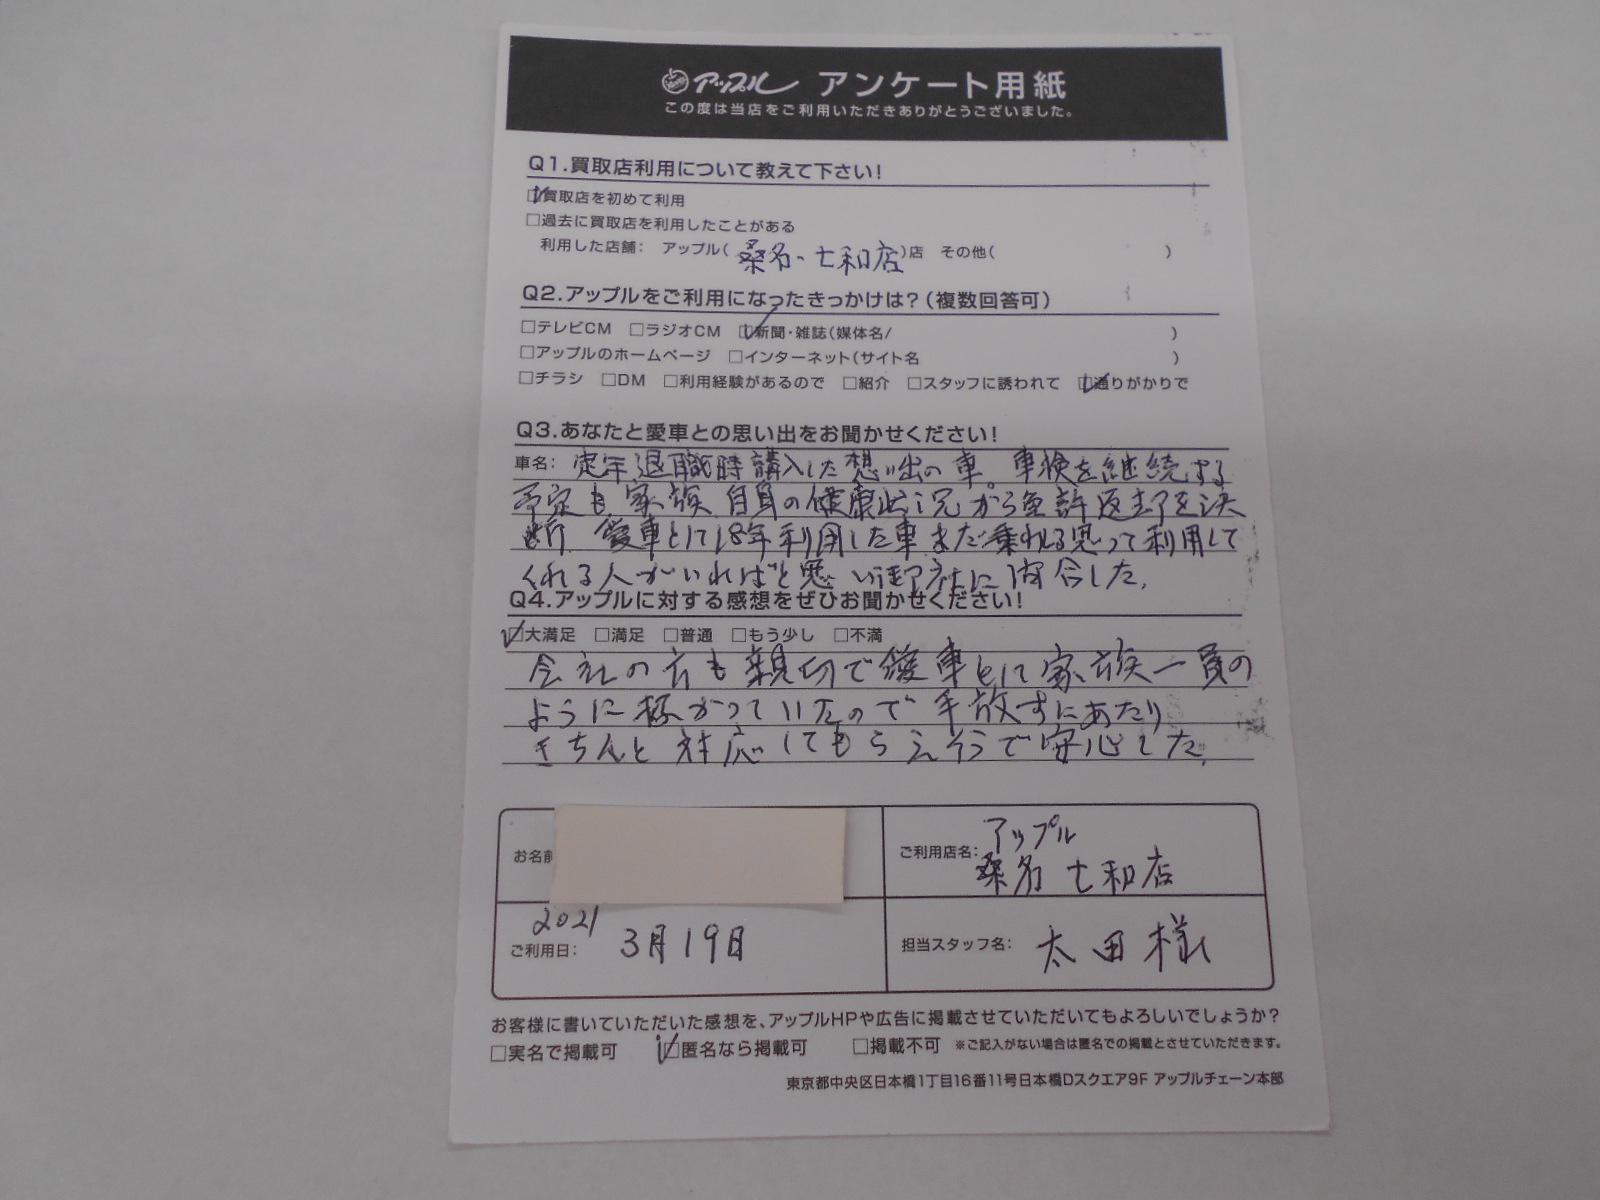 アップル アンケート用紙
この度は当店をご利用いただきありがとうございました。
Q1.買取店利用について教えて下さい!
□買取店を初めて利用
□過去に買取店を利用したことがある
利用した店舗: アップル(桑名・七和店)店 その他( )
Q2.アップルをご利用になったきっかけは?(複数回答可)
□テレビCM □ラジオCM □新聞・雑誌(媒体名/ )
□アップルのホームページ □インターネット(サイト名 )
□チラシ □DM □利用経験があるので □紹介 □スタッフに誘われて □通りがかりで
Q3.あなたと愛車との思い出をお聞かせください!
車名: 定年退職時購入した想い出の車。車検を継続する
予定も家族 自身の健康状況から免許返却を決
断 愛車として18年利用した車まだ乗れる思って利用して
くれる人がいればと思い 社に問合した.
Q4.アップルに対する感想をぜひお聞かせください!
□大満足 □満足 □普通 □もう少し □不満
会社の方も親切で愛車として家族一員の
ように扱かっていたので手放すにあたり
きちんと対応してもらえそうで安心した.
お名前
ご利用店名: アップル
桑名 七和店
2021
ご利用日: 3月19日
担当スタッフ名: 太田様
お客様に書いていただいた感想を、アップルHPや広告に掲載させていただいてもよろしいでしょうか?
□実名で掲載可 □匿名なら掲載可 □掲載不可 ※ご記入がない場合は匿名での掲載とさせていただきます。
東京都中央区日本橋1丁目16番11号日本橋Dスクエア9F アップルチェーン本部